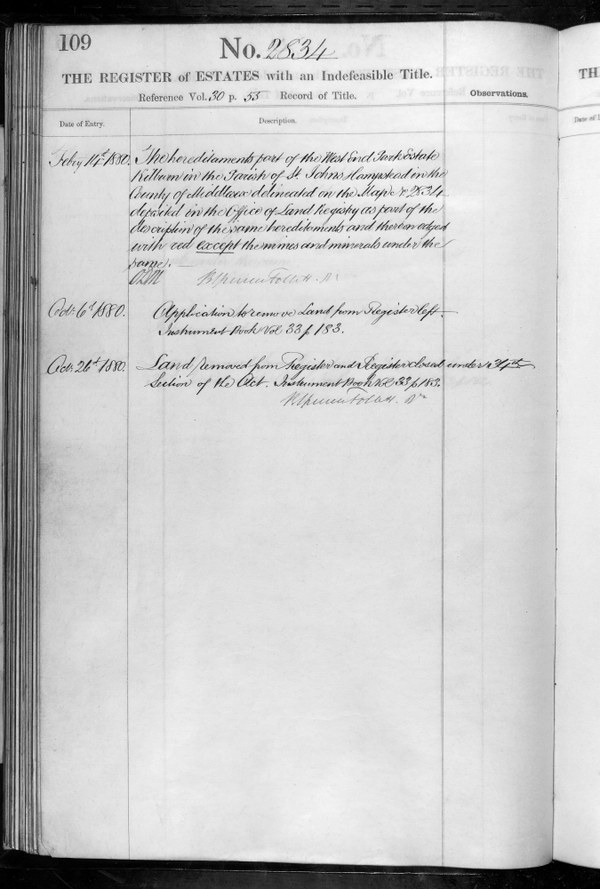 109
No. 2834
THE REGISTER of ESTATES with an Indefeasible Title.
Reference Vol. 30 p. 55 Record of Title.
Observations.
Date of Entry.
Description.
Feby 14th 1880.
The hereditaments part of the West End Park Estate
Kilburn in the Parish of St. Johns Hampstead in the
County of Middlesex delineated on the Map No 2834
deposited in the Office of Land Registry as part of the
description of the same hereditaments and thereon edged
with red except the mines and minerals under the
same.
Octr 6th 1880.
Application to remove Land from Register left.
Instrument Book Vol 33 p 183.
Octr 26th 1880.
Land removed from Register and Register closed under 34th
Section of the Act. Instrument Book Vol 33 p 183.